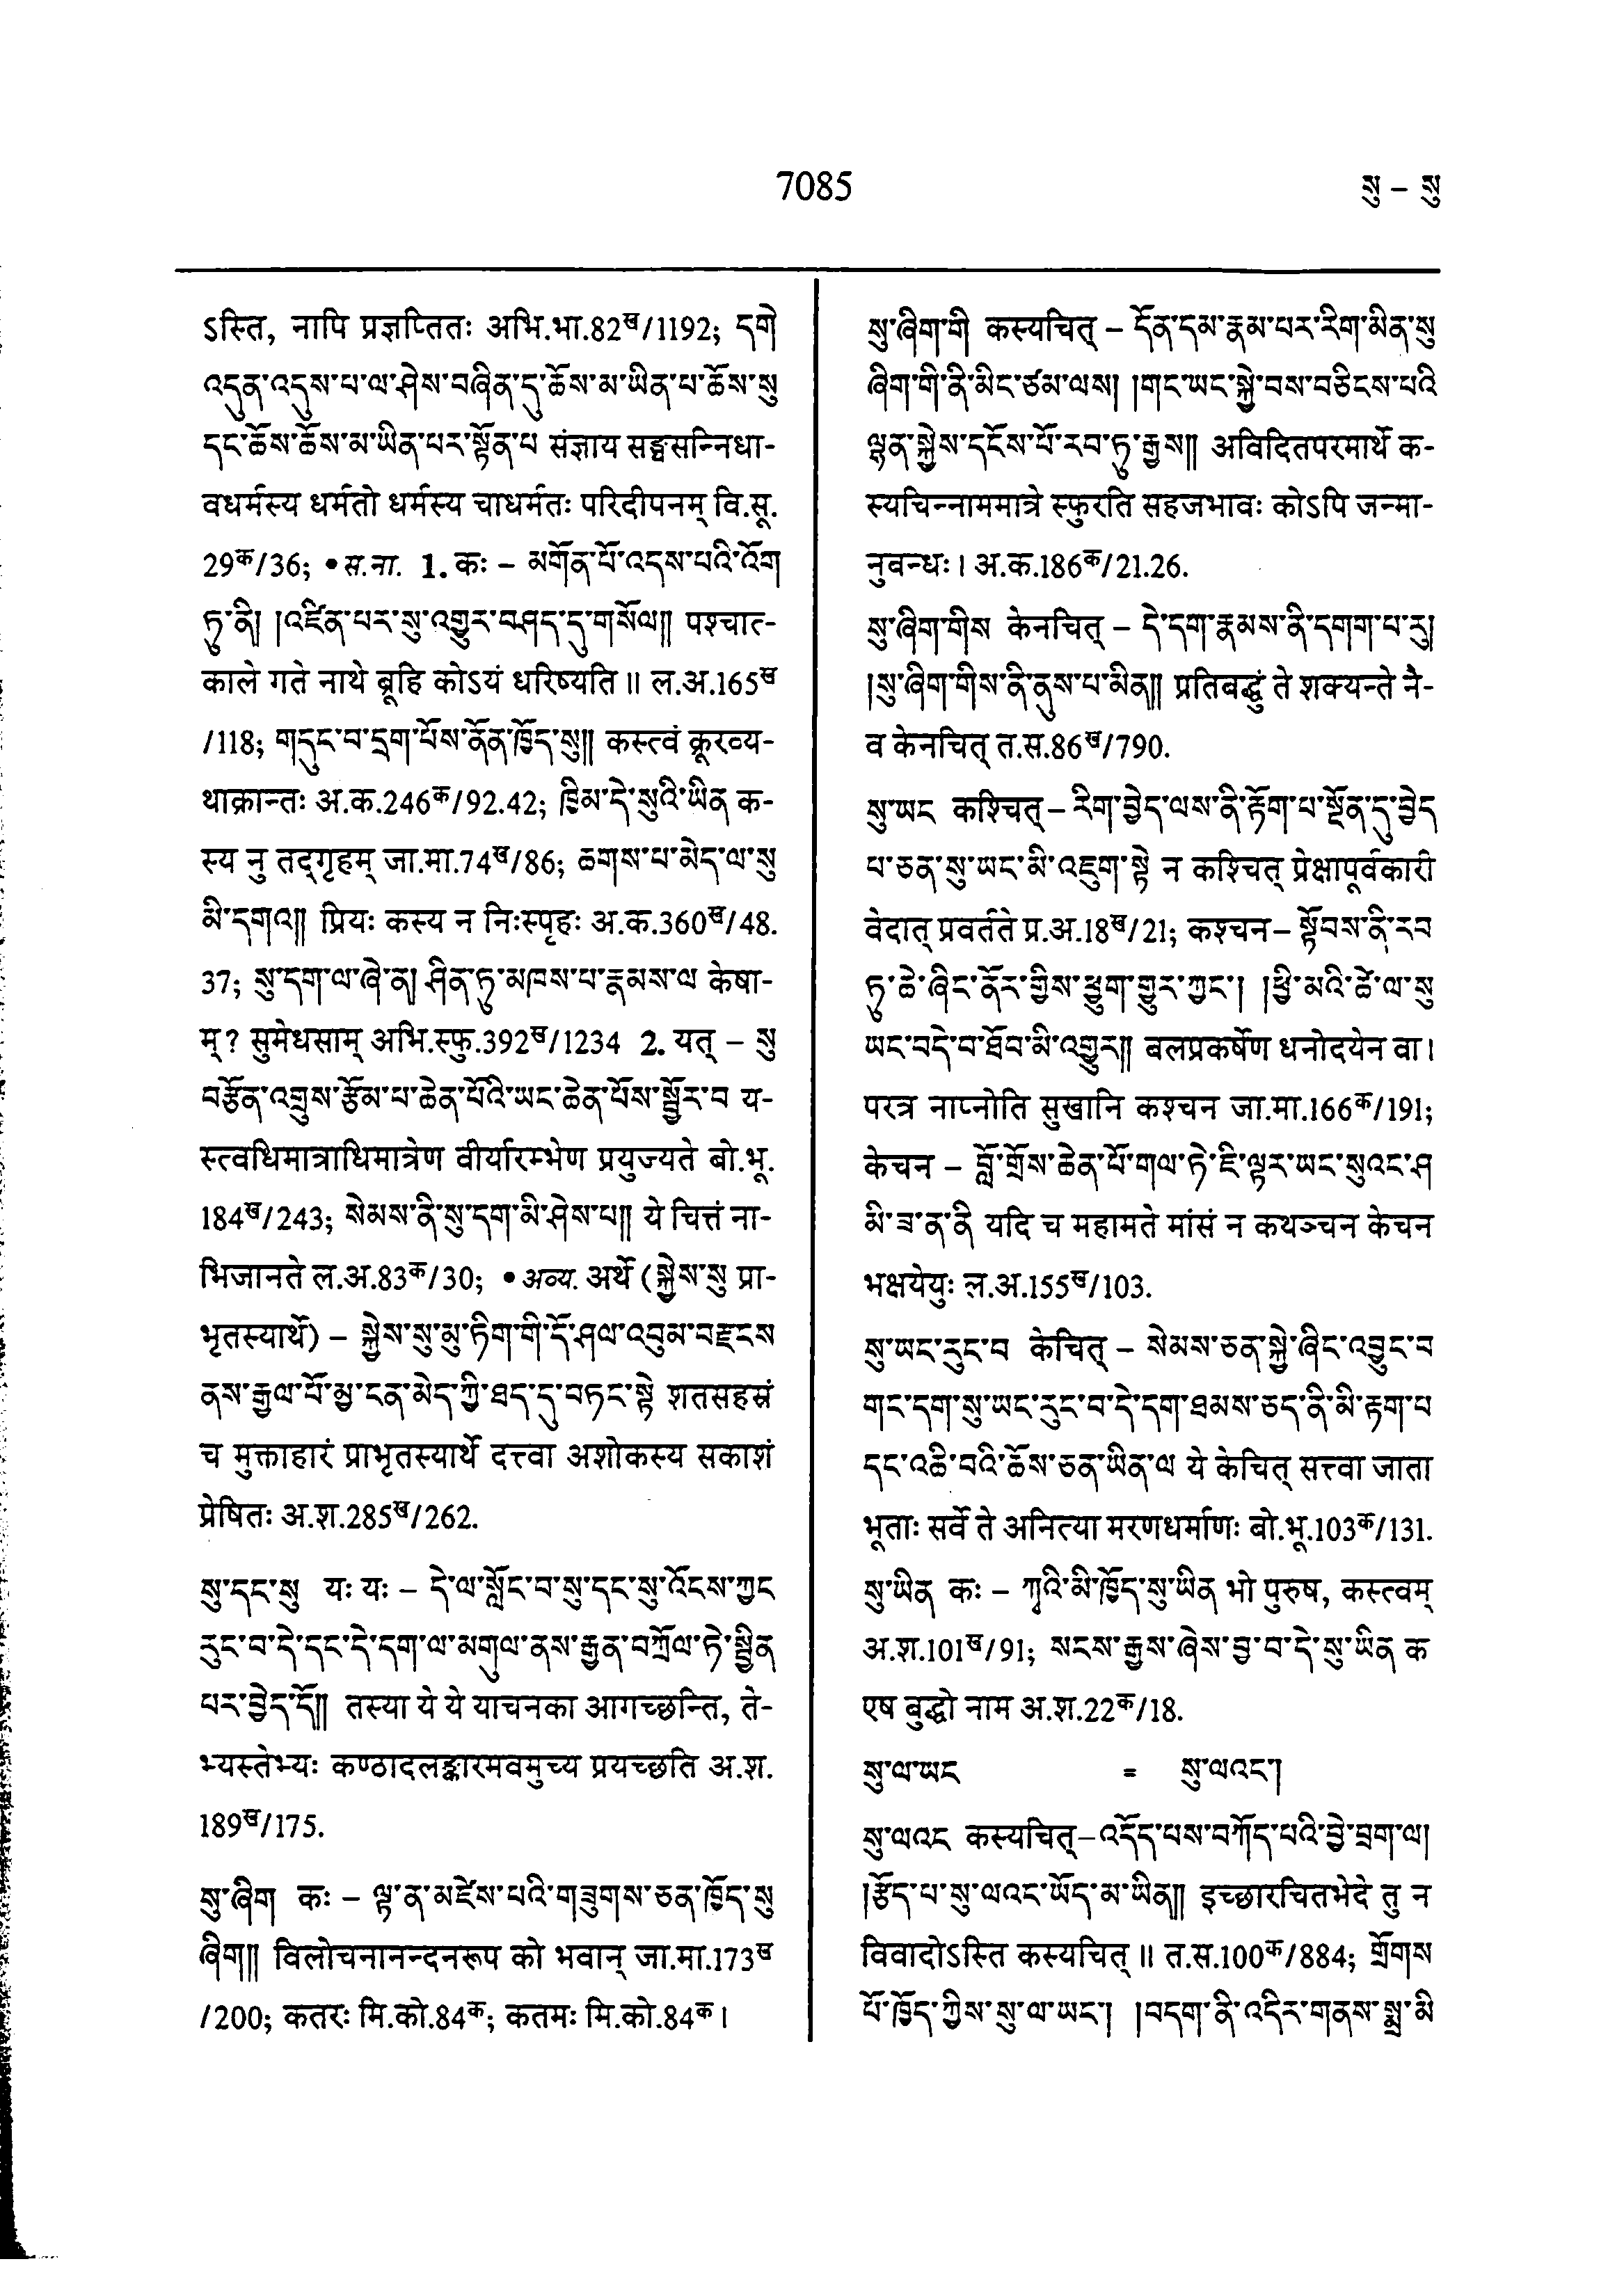 7085
སུ – སུ
ऽस्ति, नापि प्रज्ञप्तितः अभि.भा.82ख/1192; དགེ
འདུན་འདུས་པ་ལ་ཤེས་བཞིན་དུ་ཆོས་མ་ཡིན་པ་ཆོས་སུ
དང་ཆོས་ཆོས་མ་ཡིན་པར་སྟོན་པ संज्ञाय सङ्घसन्निधा-
वधर्मस्य धर्मतो धर्मस्य चाधर्मतः परिदीपनम् वि.सू.
29क/36; • स.ना. 1. कः – མགོན་པོ་འདས་པའི་འོག
ཏུ་ནི། །འཛིན་པར་སུ་འགྱུར་བཤད་དུ་གསོལ།། पश्चात्-
काले गते नाथे ब्रूहि कोऽयं धरिष्यति ॥ ल.अ.165ख
/118; གདུང་བ་དྲག་པོས་ནོན་ཁྱོད་སུ།། कस्त्वं क्रूरव्य-
थाक्रान्तः अ.क.246क/92.42; ཁྱིམ་དེ་སུའི་ཡིན क-
स्य नु तद्गृहम् जा.मा.74ख/86; ཆགས་པ་མེད་ལ་སུ
མི་དགའ།། प्रियः कस्य न निःस्पृहः अ.क.360ख/48.
37; སུ་དག་ལ་ཞེ་ན། ཤིན་ཏུ་མཁས་པ་རྣམས་ལ केषा-
म्? सुमेधसाम् अभि.स्फु.392ख/1234 2. यत् – སུ
བརྩོན་འགྲུས་རྩོམ་པ་ཆེན་པོའི་ཡང་ཆེན་པོས་སྦྱོར་བ य-
स्त्वधिमात्राधिमात्रेण वीर्यारम्भेण प्रयुज्यते बो.भू.
184ख/243; སེམས་ནི་སུ་དག་མི་ཤེས་པ།། ये चित्तं ना-
भिजानते ल.अ.83क/30; • अव्य. अर्थे (སྐྱེས་སུ प्रा-
भृतस्यार्थे) – སྐྱེས་སུ་མུ་ཏིག་གི་དོ་ཤལ་འབུམ་བརྫངས
ནས་རྒྱལ་པོ་མྱ་ངན་མེད་ཀྱི་ཐད་དུ་བཏང་སྟེ शतसहस्रं
च मुक्ताहारं प्राभृतस्यार्थे दत्त्वा अशोकस्य सकाशं
प्रेषितः अ.श.285ख/262.
སུ་དང་སུ यः यः – དེ་ལ་སློང་བ་སུ་དང་སུ་འོངས་ཀྱང
རུང་བ་དེ་དང་དེ་དག་ལ་མགུལ་ནས་རྒྱན་བཀྲོལ་ཏེ་སྦྱིན
པར་བྱེད་དོ།། तस्या ये ये याचनका आगच्छन्ति, ते-
भ्यस्तेभ्यः कण्ठादलङ्कारमवमुच्य प्रयच्छति अ.श.
189ख/175.
སུ་ཞིག कः – ལྟ་ན་མཛེས་པའི་གཟུགས་ཅན་ཁྱོད་སུ
ཞིག།། विलोचनानन्दनरूप को भवान् जा.मा.173ख
/200; कतरः मि.को.84क; कतमः मि.को.84क।
སུ་ཞིག་གི कस्यचित् – དོན་དམ་རྣམ་པར་རིག་མིན་སུ
ཞིག་གི་ནི་མིང་ཙམ་ལས། །གང་ཡང་སྐྱེ་བས་བཅིངས་པའི
ལྷན་སྐྱེས་དངོས་པོ་རབ་ཏུ་རྒྱས།། अविदितपरमार्थे क-
स्यचिन्नाममात्रे स्फुरति सहजभावः कोऽपि जन्मा-
नुबन्धः। अ.क.186क/21.26.
སུ་ཞིག་གིས केनचित् – དེ་དག་རྣམས་ནི་དགག་པ་རུ།
།སུ་ཞིག་གིས་ནི་ནུས་པ་མིན།། प्रतिबद्धुं ते शक्यन्ते नै-
व केनचित् त.स.86ख/790.
སུ་ཡང कश्चित् – རིག་བྱེད་ལས་ནི་རྟོག་པ་སྔོན་དུ་བྱེད
པ་ཅན་སུ་ཡང་མི་འཇུག་སྟེ न कश्चित् प्रेक्षापूर्वकारी
वेदात् प्रवर्तते प्र.अ.18ख/21; कश्चन – སྟོབས་ནི་རབ
ཏུ་ཆེ་ཞིང་ནོར་གྱིས་ཕྱུག་གྱུར་ཀྱང་། །ཕྱི་མའི་ཚེ་ལ་སུ
ཡང་བདེ་བ་ཐོབ་མི་འགྱུར།། बलप्रकर्षेण धनोदयेन वा।
परत्र नाप्नोति सुखानि कश्चन जा.मा.166क/191;
केचन – བློ་གྲོས་ཆེན་པོ་གལ་ཏེ་ཇི་ལྟར་ཡང་སུའང་ཤ
མི་ཟ་ན་ནི यदि च महामते मांसं न कथञ्चन केचन
भक्षयेयुः ल.अ.155ख/103.
སུ་ཡང་རུང་བ केचित् – སེམས་ཅན་སྐྱེ་ཞིང་འབྱུང་བ
གང་དག་སུ་ཡང་རུང་བ་དེ་དག་ཐམས་ཅད་ནི་མི་རྟག་པ
དང་འཆི་བའི་ཆོས་ཅན་ཡིན་ལ ये केचित् सत्त्वा जाता
भूताः सर्वे ते अनित्या मरणधर्माणः बो.भू.103क/131.
སུ་ཡིན कः – ཀྭའི་མི་ཁྱོད་སུ་ཡིན भो पुरुष, कस्त्वम्
अ.श.101ख/91; སངས་རྒྱས་ཞེས་བྱ་བ་དེ་སུ་ཡིན क
एष बुद्धो नाम अ.श.22क/18.
སུ་ལ་ཡང = སུ་ལའང་།
སུ་ལའང कस्यचित् – འདོད་པས་བཀོད་པའི་བྱེ་བྲག་ལ།
།རྩོད་པ་སུ་ལའང་ཡོད་མ་ཡིན།། इच्छारचितभेदे तु न
विवादोऽस्ति कस्यचित् ॥ त.स.100क/884; གྲོགས
པོ་ཁྱོད་ཀྱིས་སུ་ལ་ཡང་། །བདག་ནི་འདིར་གནས་སྨྲ་མི